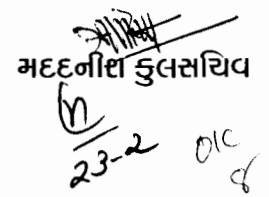 મદદનીશ કુલસચિવ
23-2
O/C
8